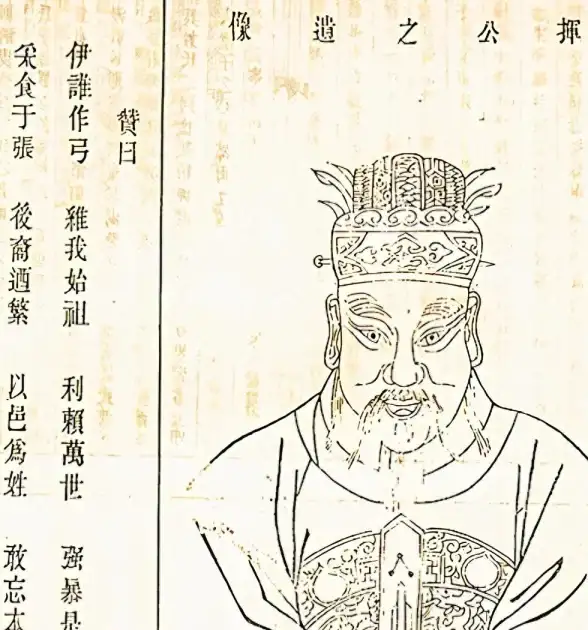 揮公之遺像
贊曰
伊誰作弓 維我始祖 利賴萬世 强暴是
采食于張 後裔迺繁 以邑爲姓 敢忘本